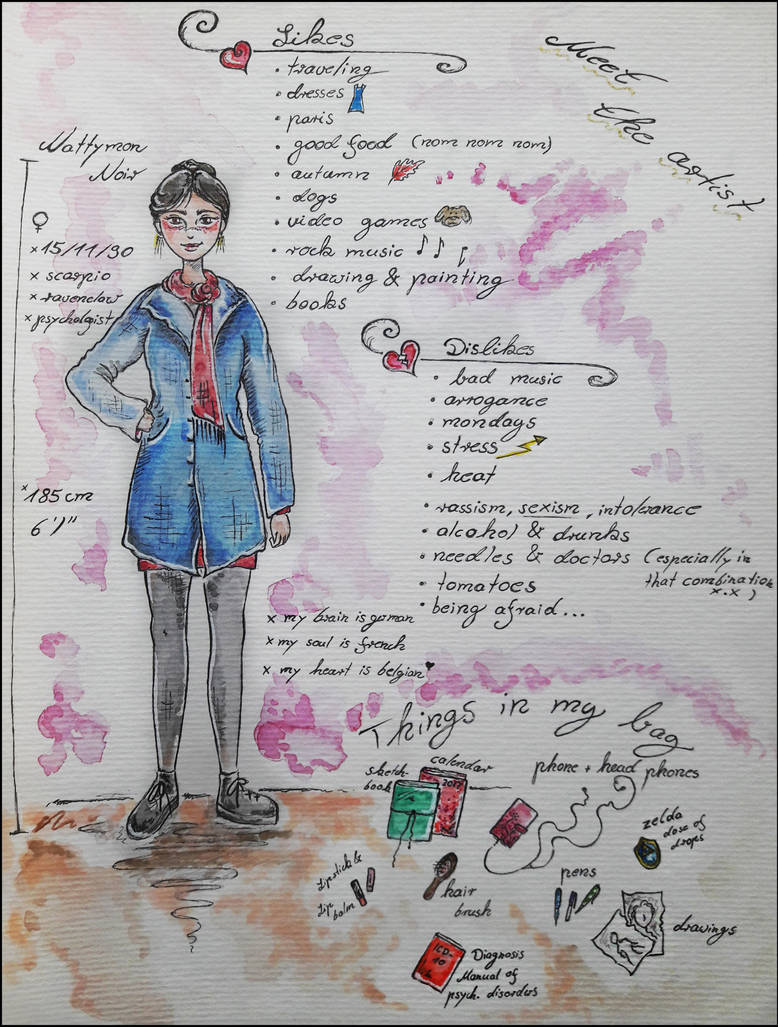 Meet
the artist
Nattymon
Noir
♀
x 15/11/90
x scorpio
x ravenclaw
x psycholgist
x 185 cm
6'1"
Likes
• traveling
• dresses
• paris
• good food (nom nom nom)
• autumn
• dogs
• video games
• rock music
• drawing & painting
• books
Dislikes
• bad music
• arrogance
• mondays
• stress
• heat
• rassism, sexism, intolerance
• alcohol & drunks
• needles & doctors (especially in
that combination
x.x )
• tomatoes
• being afraid...
x my brain is german
x my soul is french
x my heart is belgian ♥
Things in my bag
sketch
book
calendar
2017
phone + head phones
zelda
dose of
drops
lipsticks &
lip
balm
hair
brush
pens
drawings
ICD-
10
Diagnosis
Manual of
psych. disorders